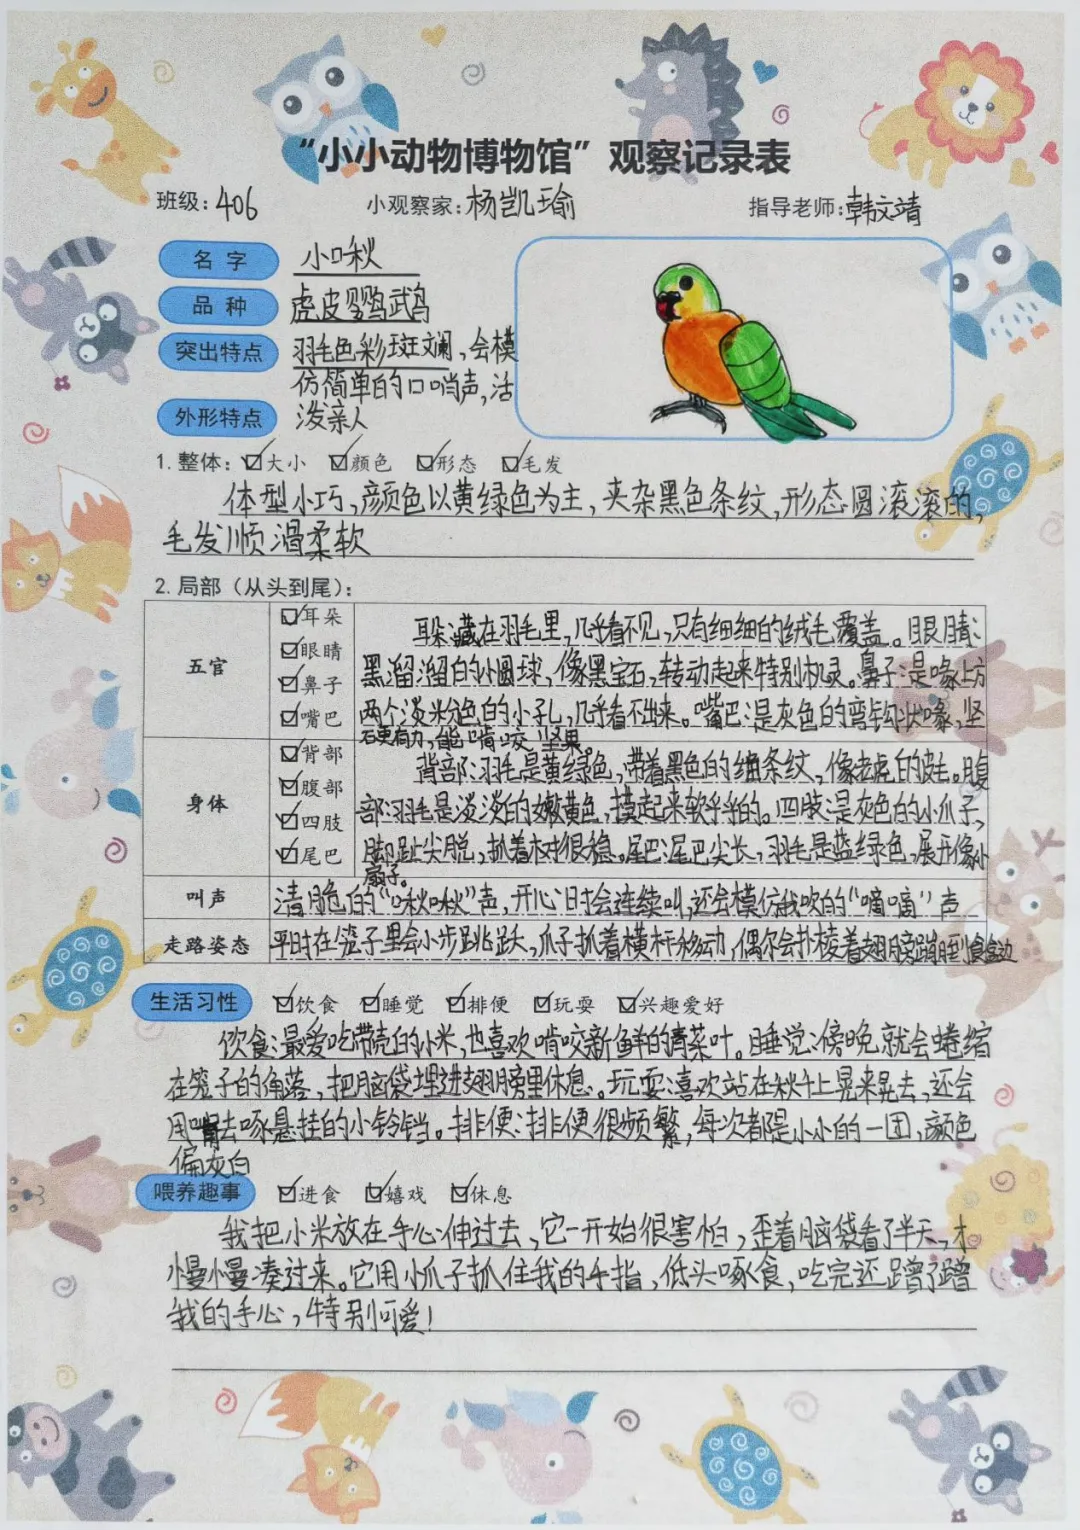 “小小动物博物馆”观察记录表
班级:406 小观察家:杨凯瑜 指导老师:韩文靖
名字 小啾
品种 虎皮鹦鹉
突出特点 羽毛色彩斑斓,会模
仿简单的口哨声,活
外形特点 泼亲人
1.整体: ☑大小 ☑颜色 ☑形态 ☑毛发
体型小巧,颜色以黄绿色为主,夹杂黑色条纹,形态圆滚滚的,
毛发顺滑柔软
2.局部(从头到尾):
五官 ☑耳朵 ☑眼睛 ☑鼻子 ☑嘴巴
耳朵:藏在羽毛里,几乎看不见,只有细细的绒毛覆盖。眼睛:
黑溜溜的小圆球,像黑宝石,转动起来特别机灵。鼻子:是喙上方
两个淡米粉色的小孔,几乎看不出来。嘴巴:是灰色的弯钩状喙,坚
石更有力,能嗑咬坚果。
身体 ☑背部 ☑腹部 ☑四肢 ☑尾巴
背部:羽毛是黄绿色,带着黑色的细条纹,像老虎的皮毛。腹
部:羽毛是淡淡的嫩黄色,摸起来软乎乎的。四肢:是灰色的小爪子,
脚趾尖脱,抓着树很稳。尾巴:尾巴尖长,羽毛是蓝绿色,展开像小
扇子。
叫声 清脆的“啾啾”声,开心时会连续叫,还会模仿我吹的“嘀嘀”声
走路姿态 平时在笼子里会小步跳跃,爪子抓着横杆移动,偶尔会扑棱着翅膀蹦到食盒边
生活习性 ☑饮食 ☑睡觉 ☑排便 ☑玩耍 ☑兴趣爱好
饮食:最爱吃带壳的小米,也喜欢啃咬新鲜的青菜叶。睡觉:傍晚就会蜷缩
在笼子的角落,把脑袋埋进翅膀里休息。玩耍:喜欢站在秋千上晃来晃去,还会
用嘴去啄悬挂的小铃铛。排便:排便很频繁,每次都是小小的一团,颜色
偏灰白
喂养趣事 ☑进食 ☑嬉戏 ☑休息
我把小米放在手心伸过去,它一开始很害怕,歪着脑袋看了半天,才
慢慢凑过来。它用小爪子抓住我的手指,低头啄食,吃完还蹭了蹭
我的手心,特别可爱!